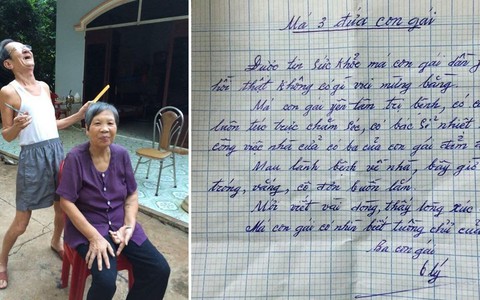 Má 3 đứa con gái
Được tin sức khỏe má con gái dần
hồi thật không có gì vui mừng bằng.
Má con gái yên tâm trị bệnh, có c
luôn túc trực chăm sóc, có bác sĩ nhiệt
công việc nhà cửa có ba của con gái đảm
Mau lành bệnh về nhà, bây giờ
trống, vắng, cô đơn buồn lắm.
Mới viết vài dòng, thấy lòng xúc
Má con gái có nhìn biết tuồng chữ của
Ba con gái
6 lý